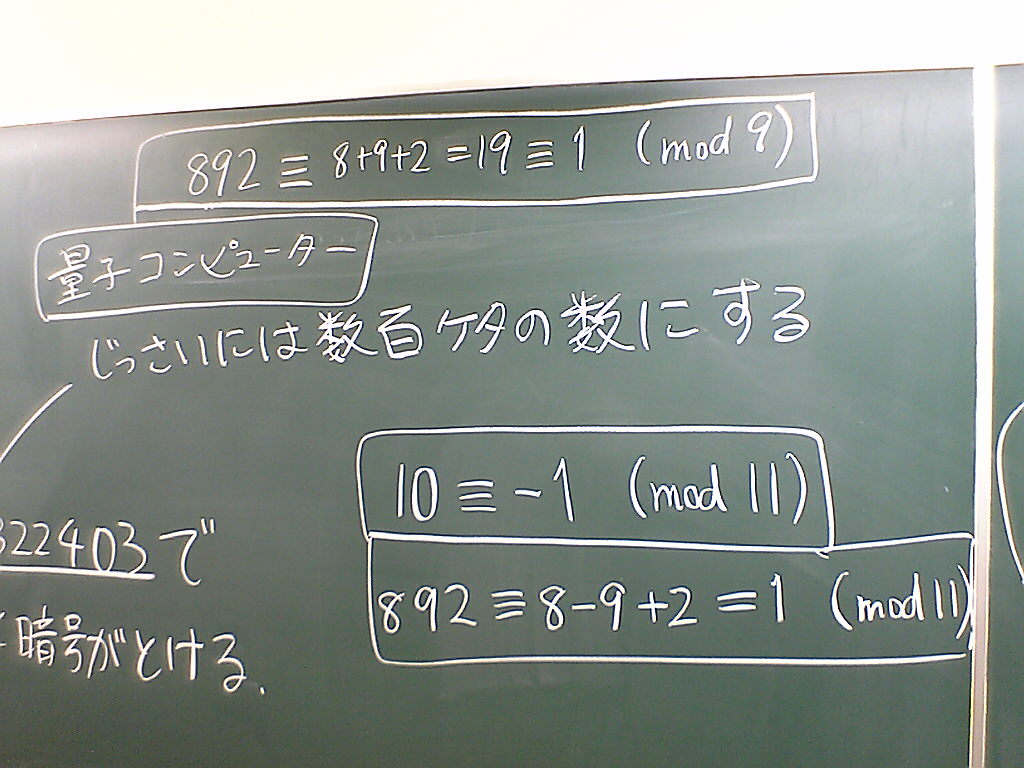 892 ≡ 8+9+2 = 19 ≡ 1 (mod 9)
量子コンピューター
じっさいには数百ケタの数にする
10 ≡ -1 (mod 11)
892 ≡ 8-9+2 = 1 (mod 11)
322403で
暗号がとける.